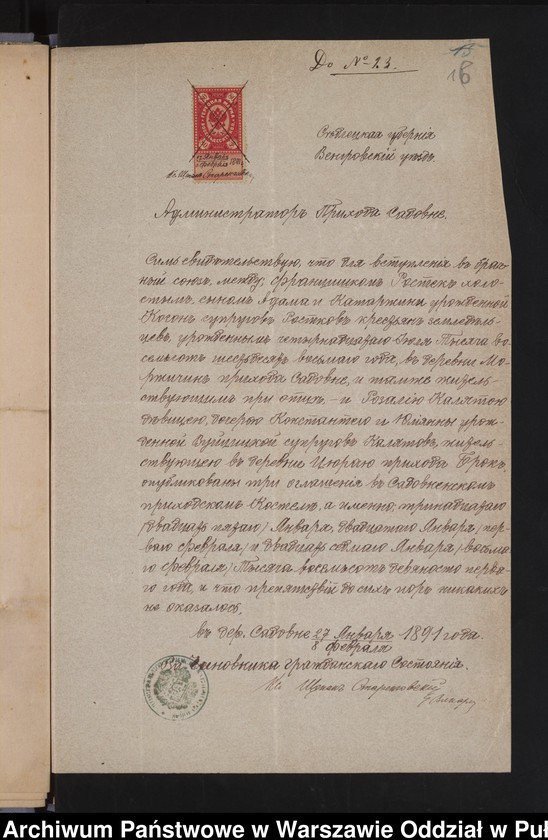 До № 23.
15
16
Сѣдлецкая губернія
Венгровскій уѣздъ
Администраторъ Прихода Садовне.
Симъ свидѣтельствую, что для вступленія въ брач-
ный союзъ, между: Францишкомъ Ростекъ холо-
стымъ, сыномъ Адама и Катаржины урожденной
супруговъ Ростковъ крестьянъ земледѣль-
цевъ, урожденнымъ четырнадцатаго Іюля Тысяча во-
семьсотъ шестьдесятъ восьмаго года, въ деревнѣ Мо-
ржичинъ прихода Садовне, и тамже житель-
ствующимъ при отцѣ, – и Розалію Калятою
дѣвицею, дочерью Константего и Юліанны урож-
денной супруговъ Калятовъ, житель-
ствующею въ деревнѣ прихода Брокъ,
опубликованы три оглашенія въ Садовненскомъ
приходскомъ Костелѣ, а именно: тринадцатаго
/двадцать пятаго/ Января, двадцатаго Января /пер-
ваго Февраля/ и двадцать седьмаго Января /восьма-
го Февраля/ Тысяча восемьсотъ девяносто перва-
го года, и что препятствій до сихъ поръ никакихъ
не оказалось.
въ дер. Садовне 27 Января 1891 года.
8 Февраля
Чиновника Гражданскаго Состоянія.
Archiwum Państwowe w Warszawie Oddział w Puł